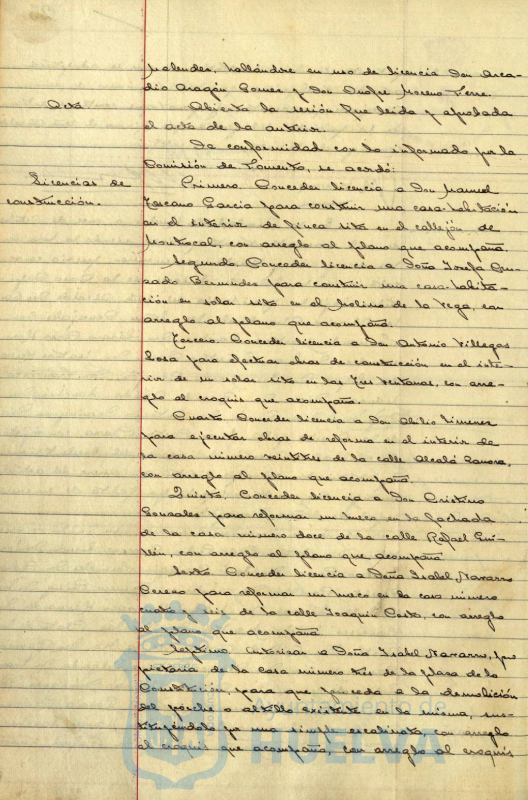 Melendez, hallándose en uso de licencia Don Arca-
dio Aragón Gomez y Don Onofre Moreno
Acta Abierta la sesión fue leida y aprobada
el acta de la anterior.
De conformidad con lo informado por la
Comisión de Fomento, se acordó:
Licencias de Primero. Conceder licencia a Don Manuel
construcción. Toscano Garcia para construir una casa-habitación
en el interior de finca sita en el callejón de
Montrocal, con arreglo al plano que acompaña.
Segundo. Conceder licencia a Doña Josefa Cru-
zado Bermudez para construir una casa-habita-
ción en solar sito en el Molino de la Vega, con
arreglo al plano que acompaña.
Tercero. Conceder licencia a Don Antonio Villegas
Sosa para efectuar obras de construcción en el inte-
rior de un solar sito en las Tres Ventanas, con arre-
glo al croquis que acompaña.
Cuarto. Conceder licencia a Don Jimenez
para ejecutar obras de reforma en el interior de
la casa número veintitres de la calle Alcalá Zamora,
con arreglo al plano que acompaña.
Quinto. Conceder licencia a Don Cristino
Gonzalez para reformar un hueco en la fachada
de la casa número doce de la calle Rafael Gui-
llén, con arreglo al plano que acompaña
Sexto. Conceder licencia a Doña Isabel Navarro
Cerezo para reformar un hueco en la casa número
y seis de la calle Joaquin Costa, con arreglo
al plano que acompaña
Septimo. Autorizar a Doña Isabel Navarro, pro-
pietaria de la casa número tres de la plaza de la
Constitución, para que proceda a la demolición
del porche o altillo existente en la misma, sus-
tituyéndolo por una simple escalinata, con arreglo
al croquis que acompaña, con arreglo al croquis
Ayuntamiento de
HUELVA